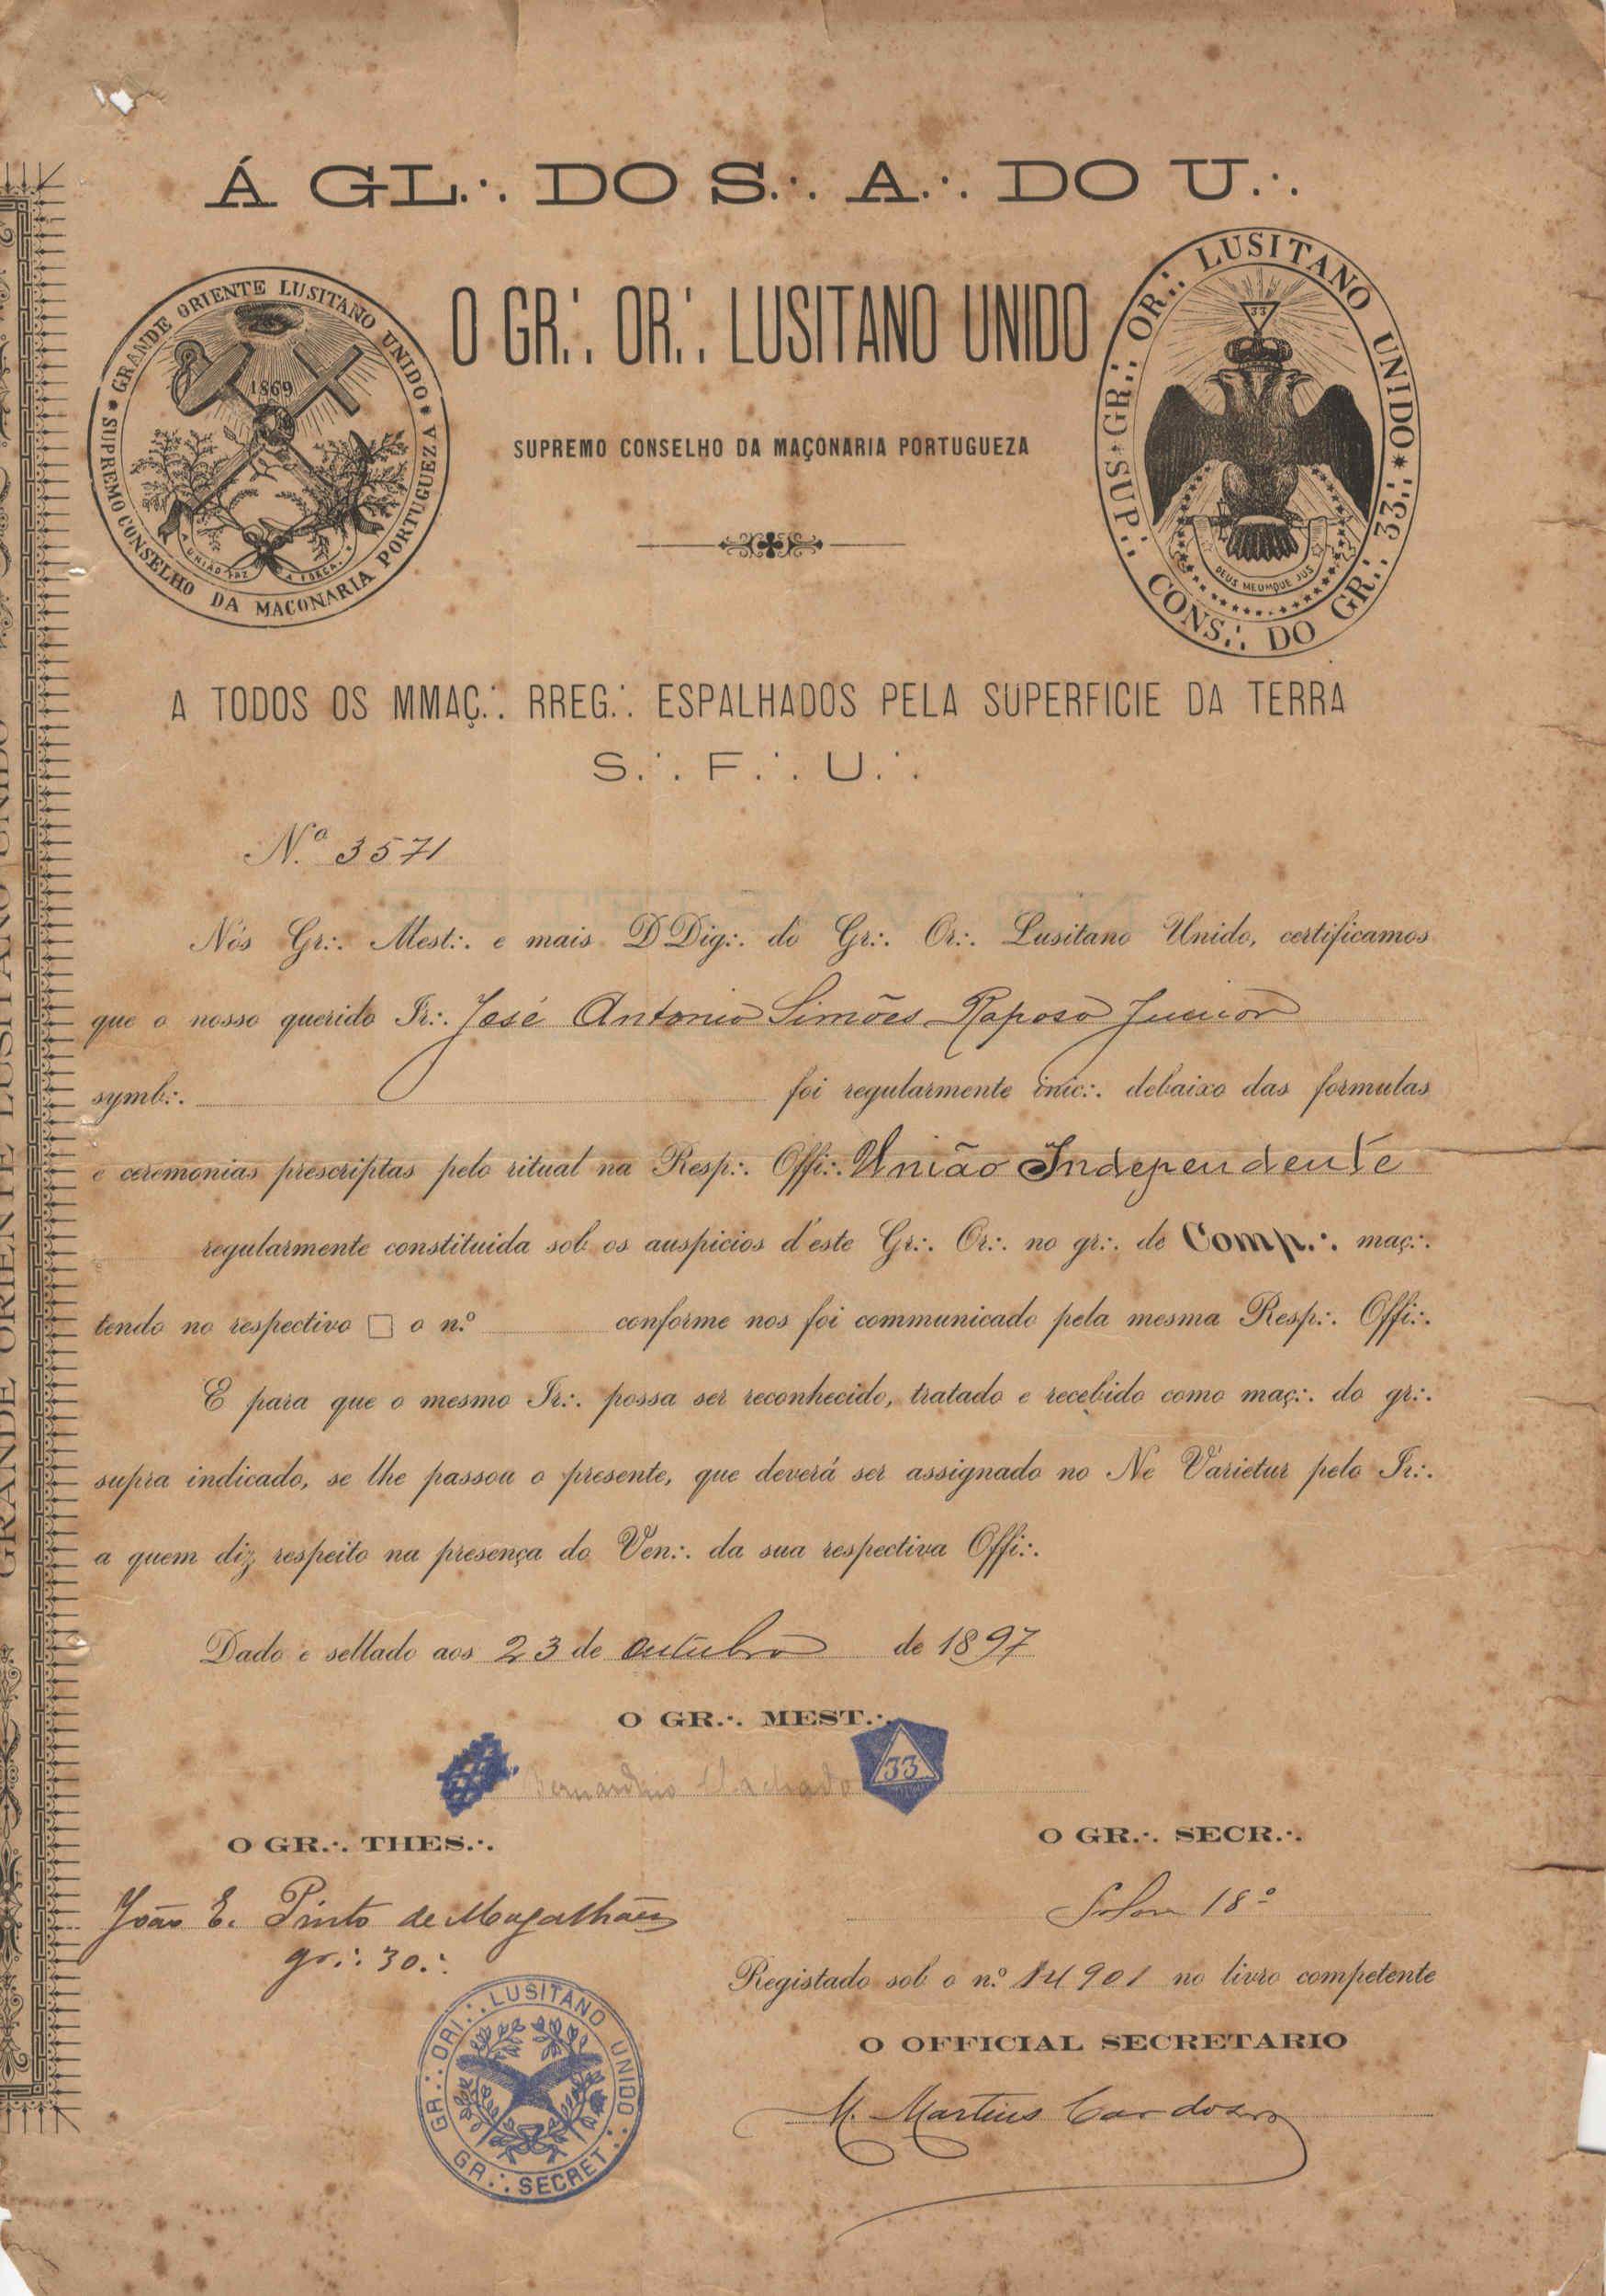 Á GL.·. DO S.·. A.·. DO U.·.
GRANDE ORIENTE LUSITANO UNIDO
SUPREMO CONSELHO DA MAÇONARIA PORTUGUEZA
1869
A UNIÃO FAZ A FORÇA
O GR.·. OR.·. LUSITANO UNIDO
SUPREMO CONSELHO DA MAÇONARIA PORTUGUEZA
GR.·. OR.·. LUSITANO UNIDO
SUP.·. CONS.·. DO GR.·. 33.·.
33
DEUS MEUMQUE JUS
A TODOS OS MMAÇ.·. RREG.·. ESPALHADOS PELA SUPERFICIE DA TERRA
S.·. F.·. U.·.
N.º 3571
Nós Gr.·. Mest.·. e mais DDig.·. do Gr.·. Or.·. Lusitano Unido, certificamos
que o nosso querido Ir.·. José Antonio Simões Raposo Junior
symb.·. foi regularmente inic.·. debaixo das formulas
e ceremonias prescriptas pelo ritual na Resp.·. Offi.·. União Independente
regularmente constituida sob os auspicios d'este Gr.·. Or.·. no gr.·. de Comp.·. maç.·.
tendo no respectivo □ o n.º conforme nos foi communicado pela mesma Resp.·. Offi.·.
E para que o mesmo Ir.·. possa ser reconhecido, tratado e recebido como maç.·. do gr.·.
supra indicado, se lhe passou o presente, que deverá ser assignado no Ne Varietur pelo Ir.·.
a quem diz respeito na presença do Ven.·. da sua respectiva Offi.·.
Dado e sellado aos 23 de outubro de 1897
O GR.·. MEST.·.
Bernardino Machado
33
O GR.·. THES.·.
O GR.·. SECR.·.
João E. Pinto de Magalhães
gr.·. 30.·.
Solon 18º
Registado sob o n.º 14901 no livro competente
O OFFICIAL SECRETARIO
M. Martins Cardoso
GR.·. ORI.·. LUSITANO UNIDO
GR.·. SECRET.·.
GRANDE ORIENTE LUSITANO UNIDO